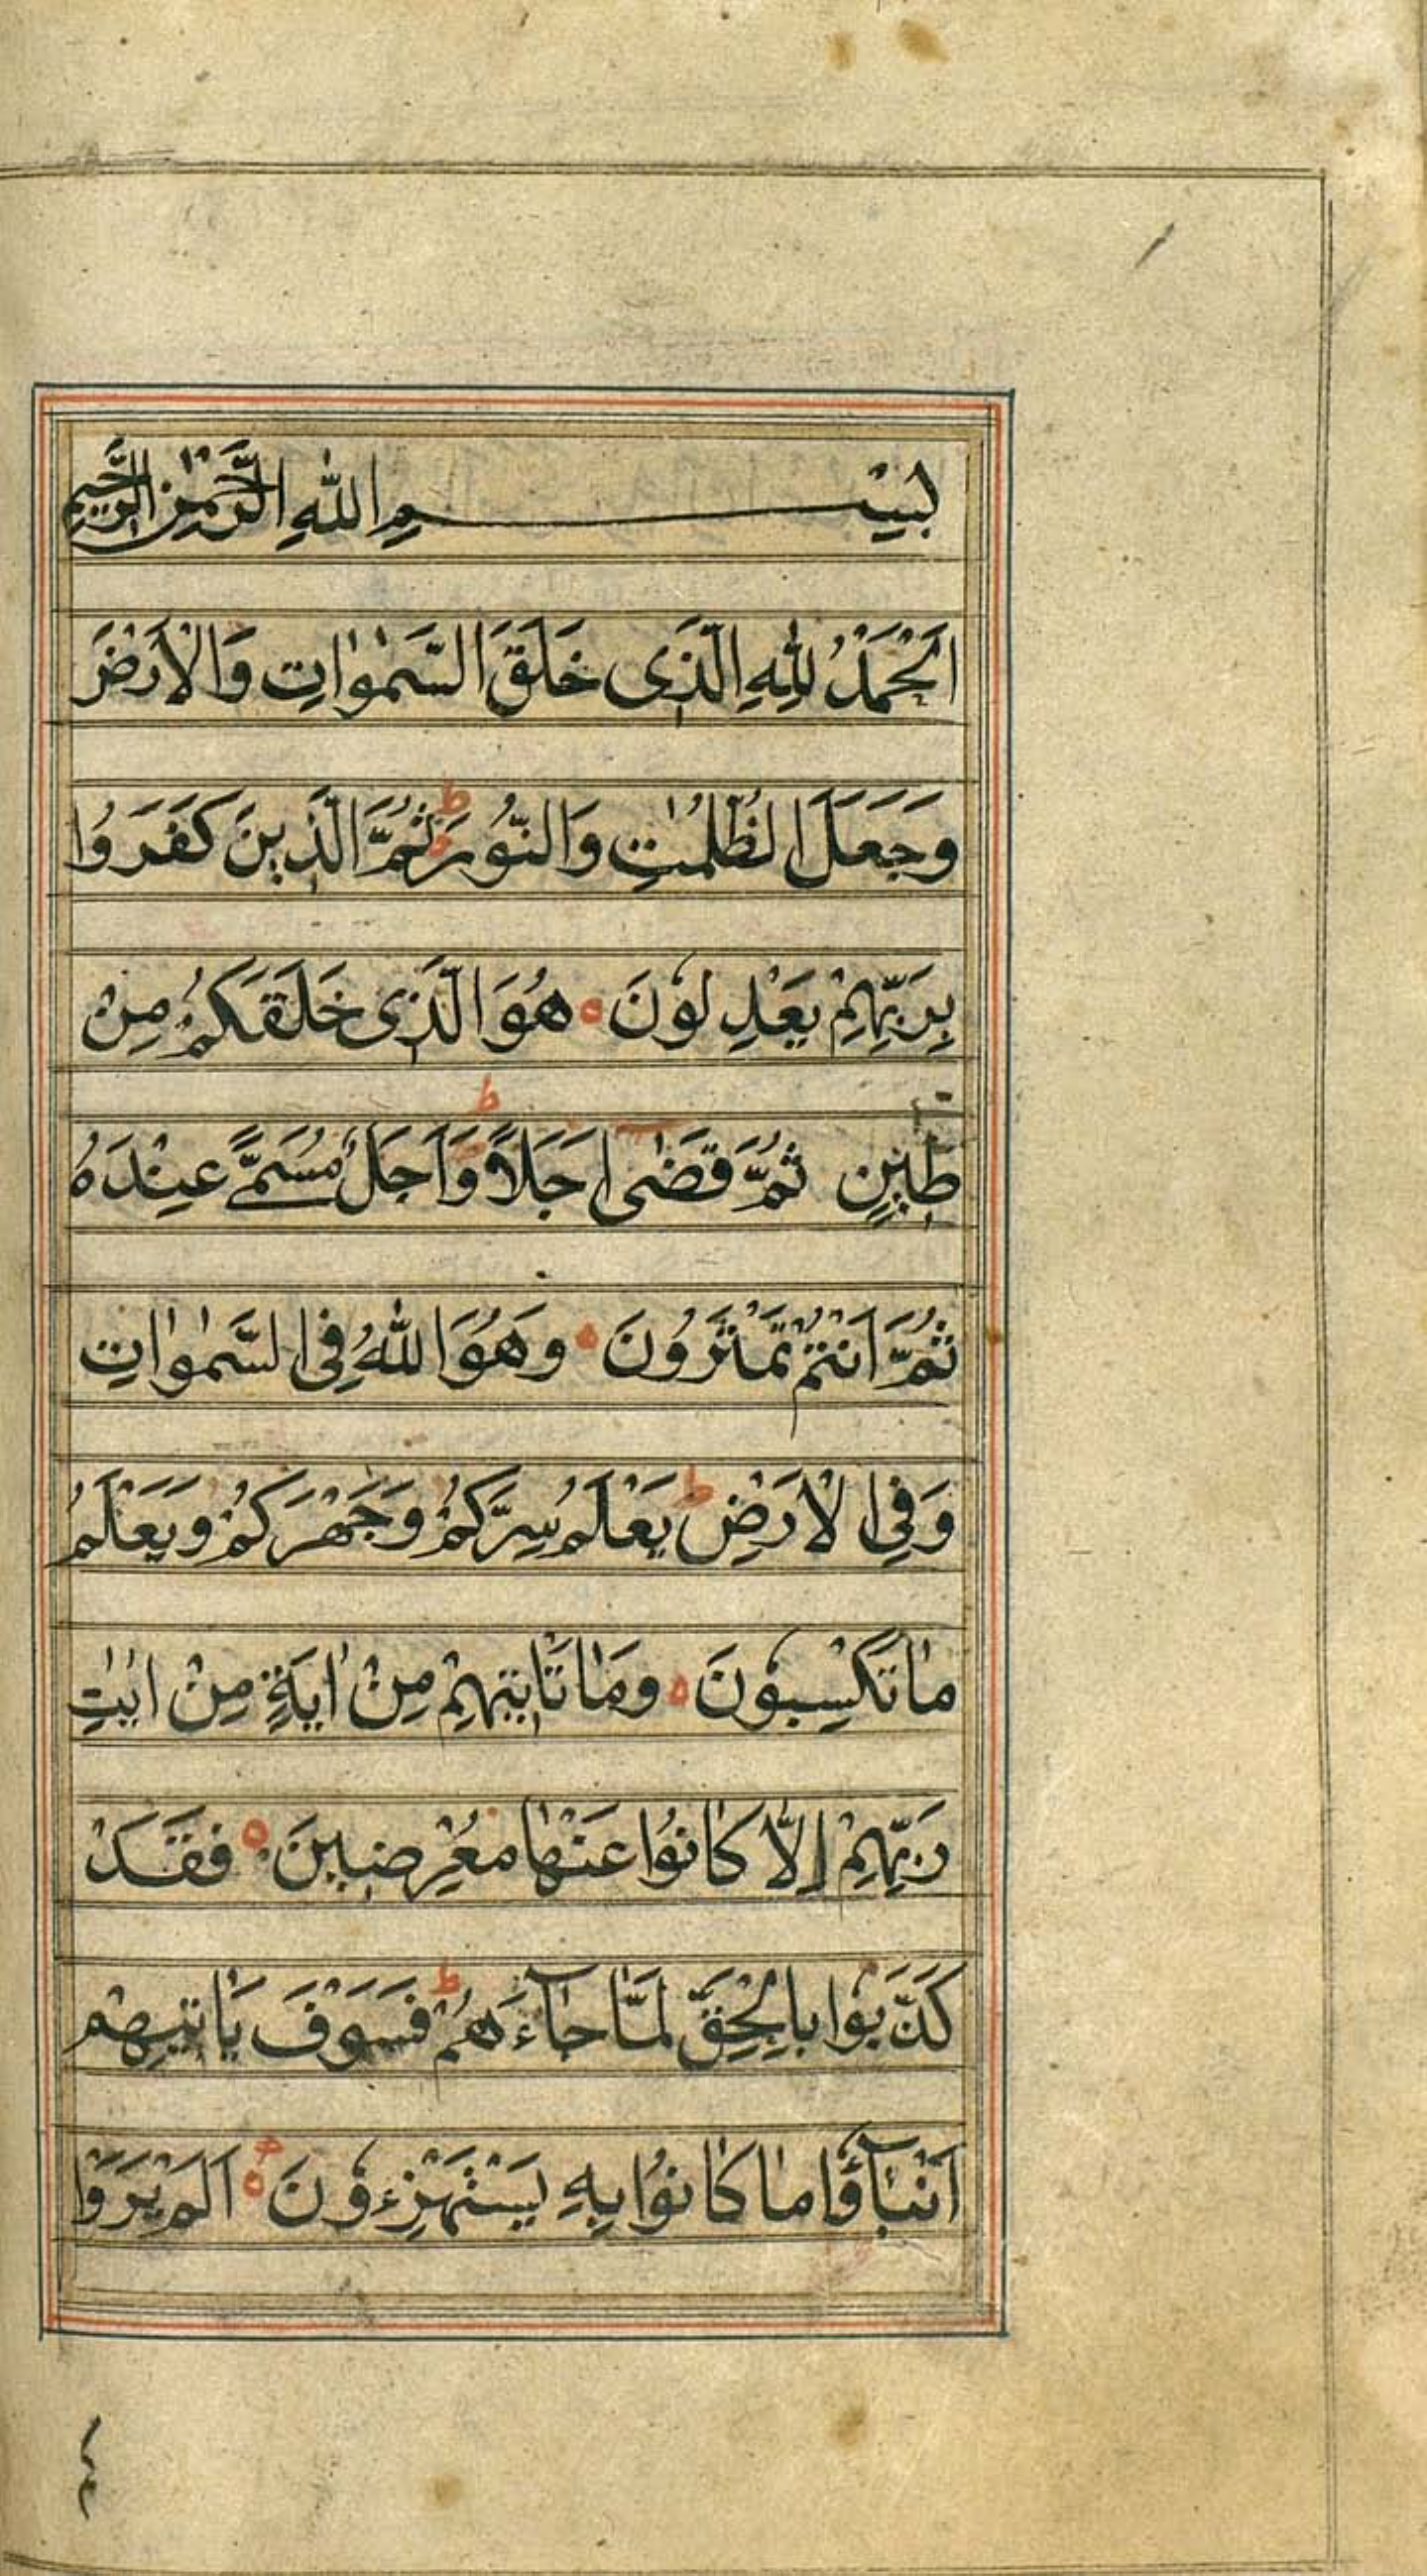 بِسْمِ اللّٰهِ الرَّحْمٰنِ الرَّحِيْمِ
اَلْحَمْدُ لِلّٰهِ الَّذِى خَلَقَ السَّمٰوٰاتِ وَالْاَرْضَ
وَجَعَلَ الظُّلُمٰتِ وَالنُّورَ ط ثُمَّ الَّذِينَ كَفَرَوُا
بِرَبِّهِمْ يَعْدِلُونَ ه هُوَ الَّذِى خَلَقَكُمْ مِنْ
طِينٍ ثُمَّ قَضٰى اَجَلاً ط وَاَجَلٌ مُسَمًّى عِنْدَهُ
ثُمَّ اَنْتُمْ تَمْتَرُونَ ه وَهُوَ اللّٰهُ فِى السَّمٰوٰاتِ
وَفِى الْاَرْضِ ط يَعْلَمُ سِرَّكُمْ وَجَهْرَكُمْ وَيَعْلَمُ
مٰا تَكْسِبُونَ ه وَمٰا تَأْتِيهِمْ مِنْ اٰيَةٍ مِنْ اٰيٰتِ
رَبِّهِمْ اِلّٰا كٰانُوا عَنْهٰا مُعْرِضِينَ ه فَقَدْ
كَذَّبُوا بِالْحَقِّ لَمّٰا جٰٓاءَهُمْ ط فَسَوْفَ يَأْتِيهِمْ
اَنْبٰٓاؤُا مٰا كٰانُوا بِهِ يَسْتَهْزِءُونَ ه اَلَمْ يَرَوْا
٤